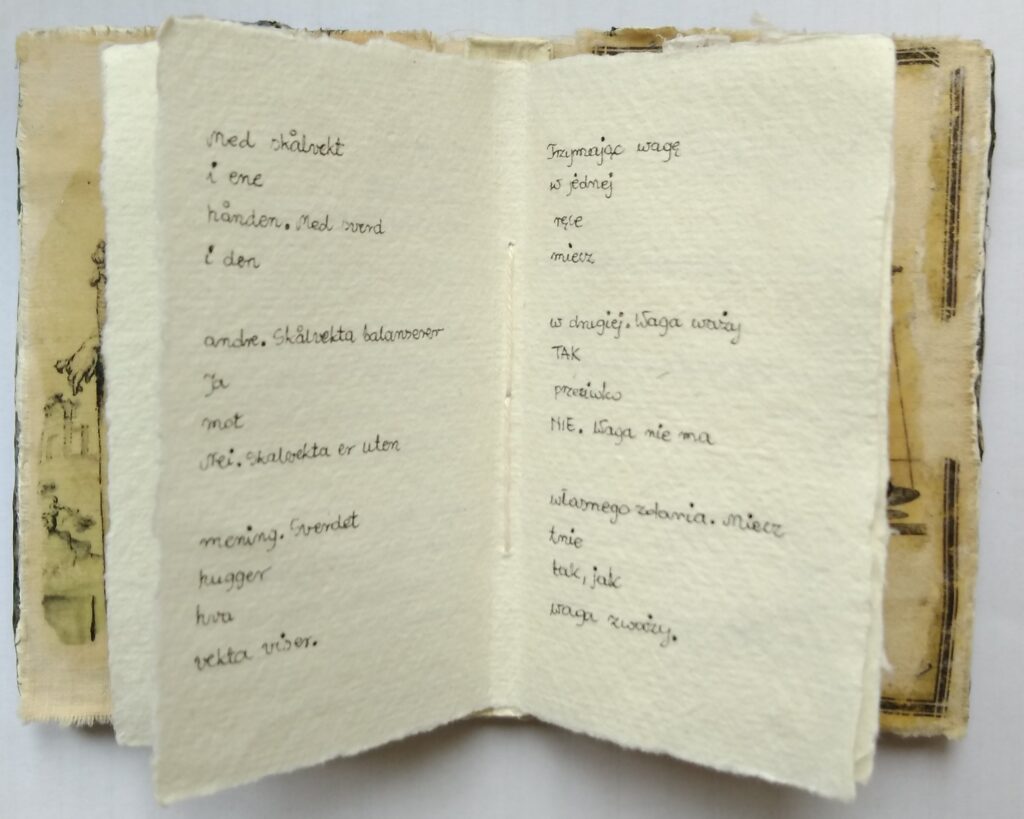 Med skålvekt
i ene
hånden. Med sverd
i den
andre. Skålvekta balanserer
Ja
mot
Nei. Skålvekta er uten
mening. Sverdet
hugger
hva
vekta viser.
Trzymając wagę
w jednej
ręce
miecz
w drugiej. Waga waży
TAK
przeciwko
NIE. Waga nie ma
własnego zdania. Miecz
tnie
tak, jak
waga zważy.